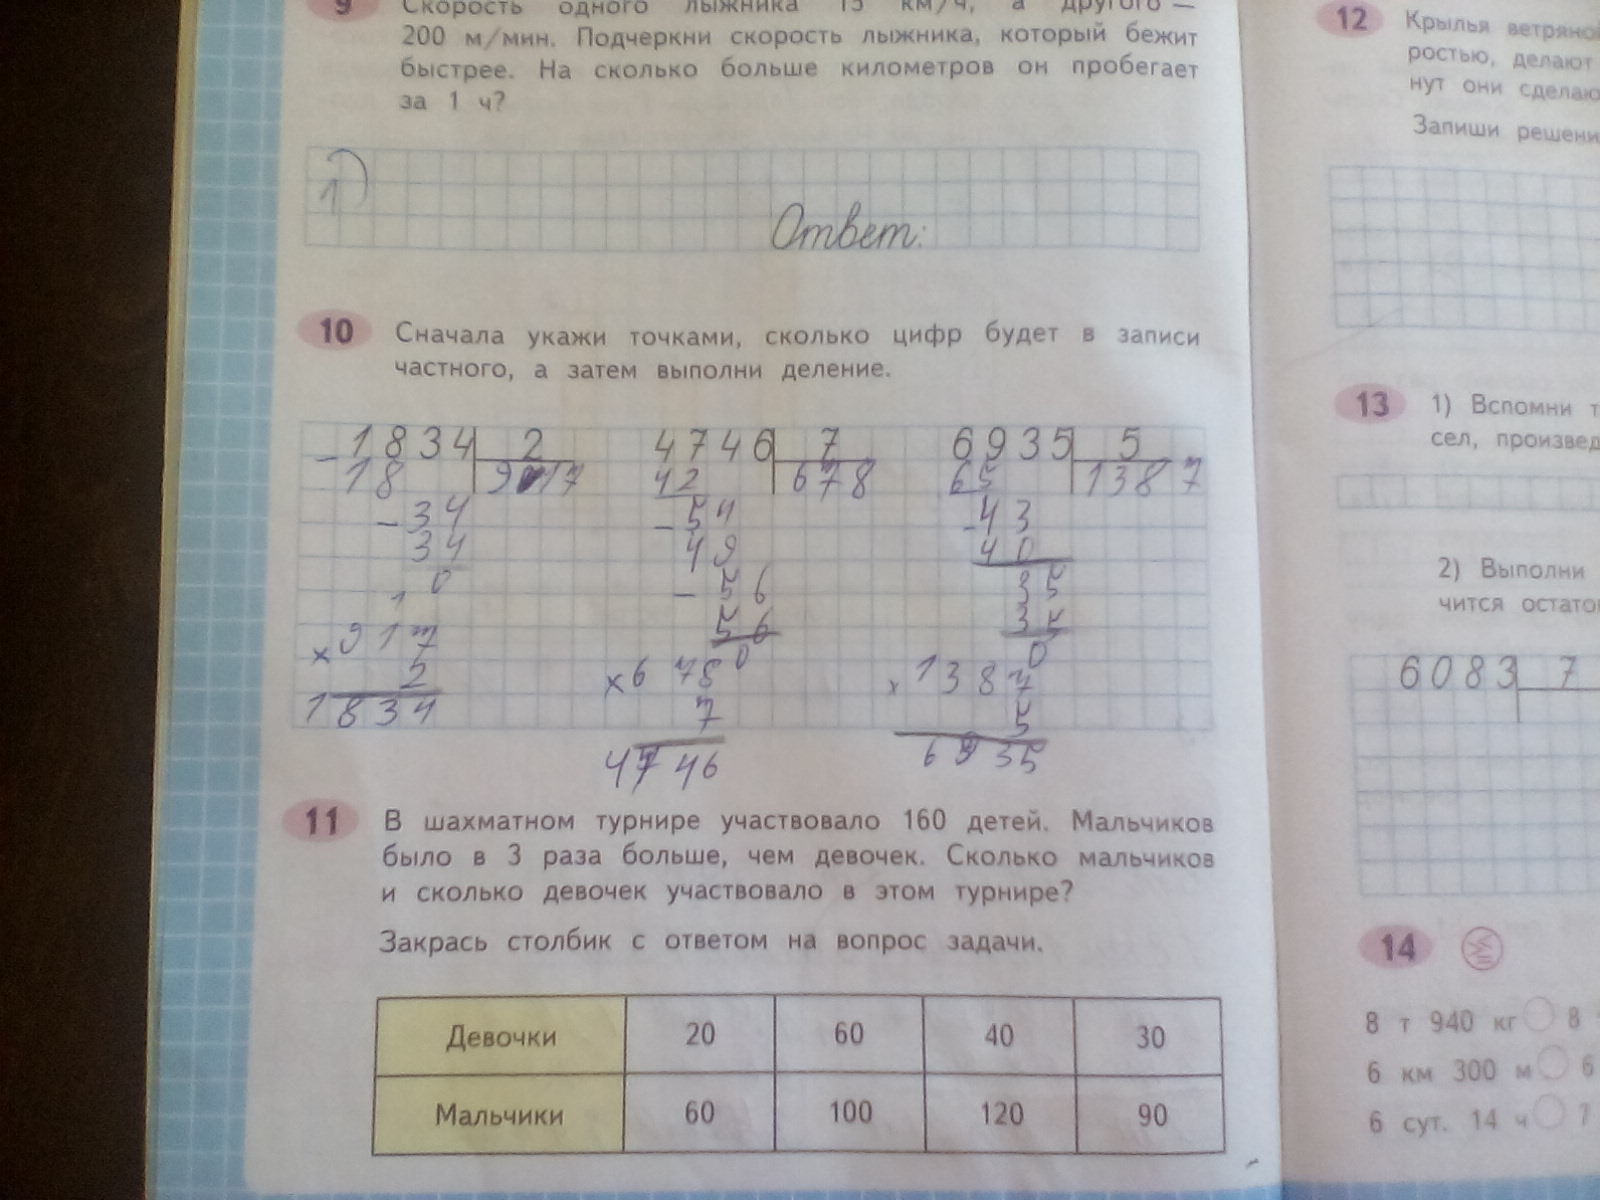 9 Скорость одного лыжника 15 км/ч, а другого —
200 м/мин. Подчеркни скорость лыжника, который бежит
быстрее. На сколько больше километров он пробегает
за 1 ч?
1)
Ответ:
10 Сначала укажи точками, сколько цифр будет в записи
частного, а затем выполни деление.
- 1834 2
18 917
- 34
34
0
1
× 917
2
1834
4746 7
42 678
- 54
49
- 56
56
0
× 678
7
4746
6935 5
65 1387
- 43
40
35
35
0
× 1387
5
6935
11 В шахматном турнире участвовало 160 детей. Мальчиков
было в 3 раза больше, чем девочек. Сколько мальчиков
и сколько девочек участвовало в этом турнире?
Закрась столбик с ответом на вопрос задачи.
Девочки 20 60 40 30
Мальчики 60 100 120 90
12 Крылья
ростью, делают
нут они
Запиши
13 1) Вспомни
сел,
2) Выполни
чится
6083 7
14
8 т 940 кг 8
6 км 300 м 6
6 сут. 14 ч 7